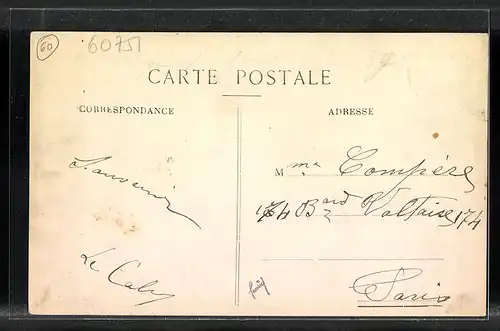 60
60751
CARTE POSTALE
CORRESPONDANCE
ADRESSE
Souvenir
Mme Compère
174 Bard Voltaire 174
Paris